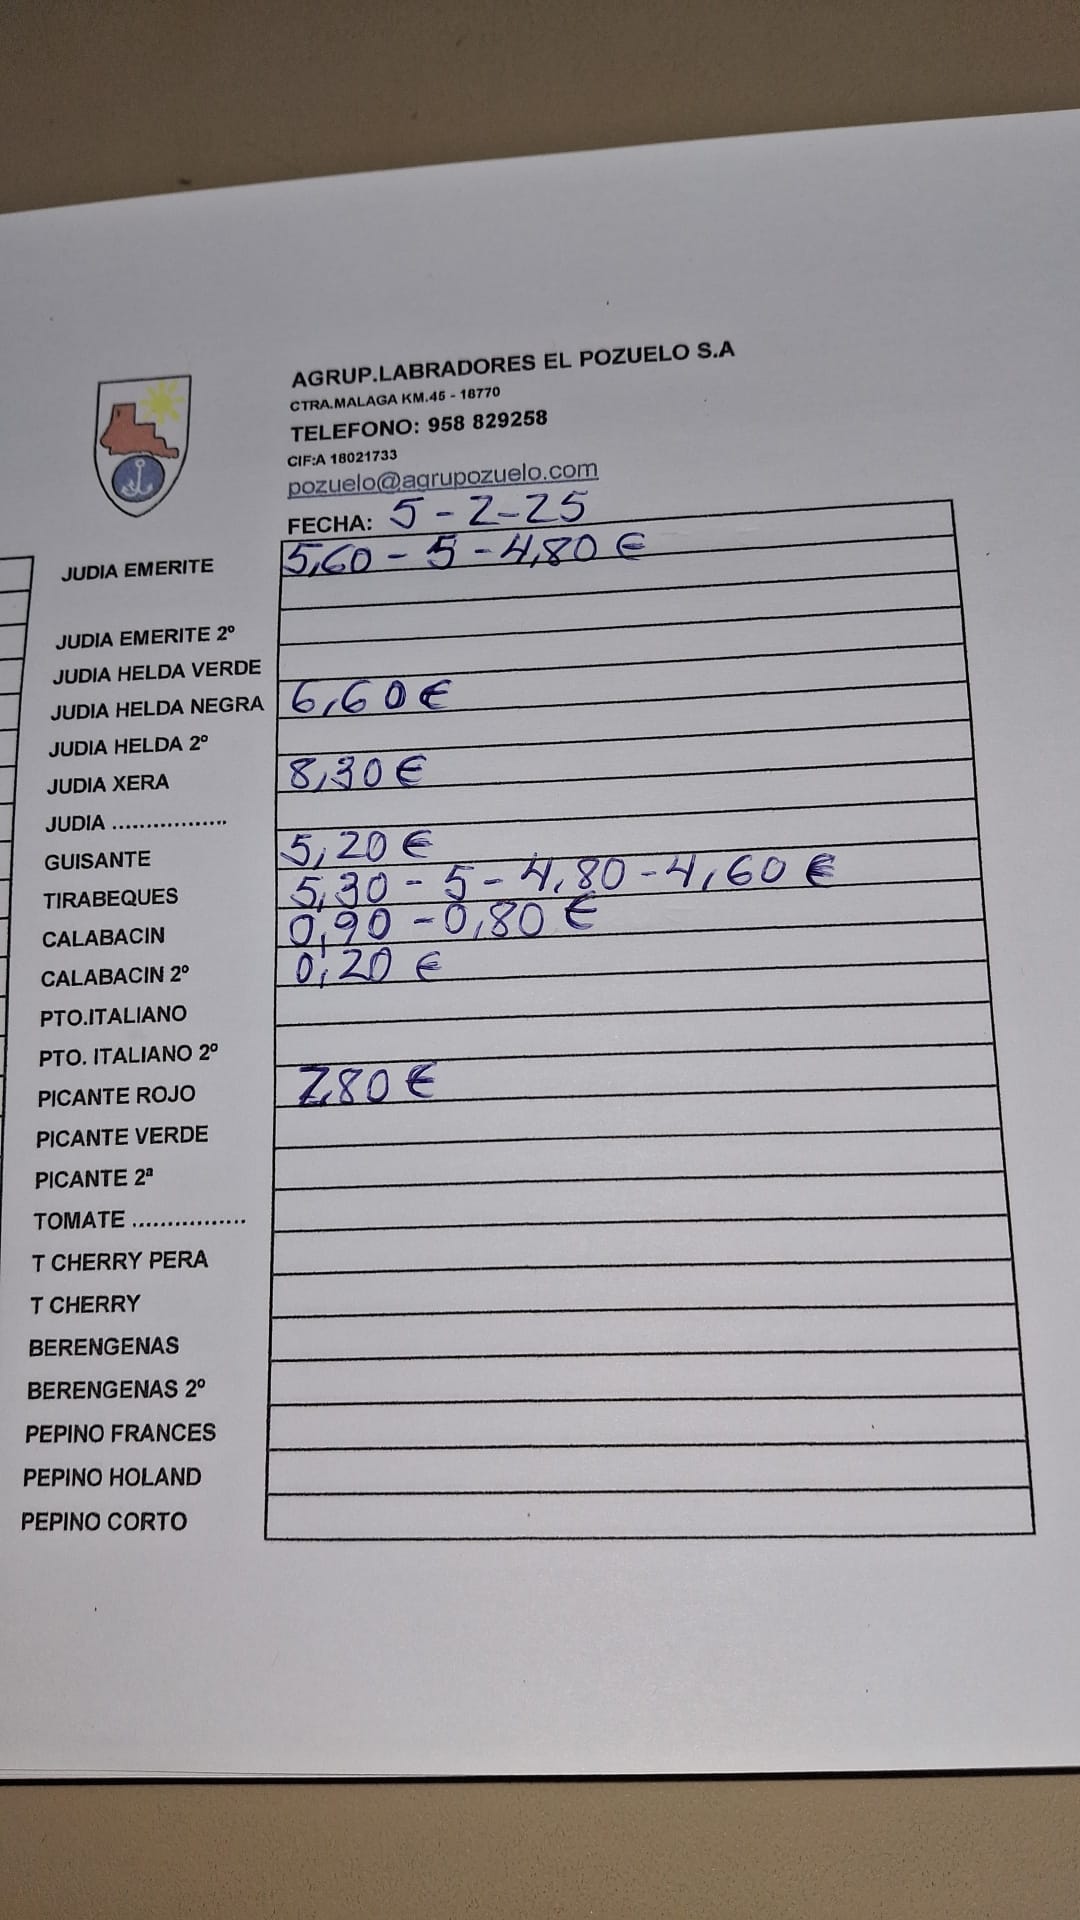 AGRUP.LABRADORES EL POZUELO S.A
CTRA.MALAGA KM.45 - 18770
TELEFONO: 958 829258
CIF:A 18021733
pozuelo@agrupozuelo.com
FECHA: 5-2-25
JUDIA EMERITE 5,60 - 5 - 4,80 €
JUDIA EMERITE 2º
JUDIA HELDA VERDE
JUDIA HELDA NEGRA 6,60 €
JUDIA HELDA 2º
JUDIA XERA 8,30 €
JUDIA .................
GUISANTE 5,20 €
TIRABEQUES 5,30 - 5 - 4,80 - 4,60 €
CALABACIN 0,90 - 0,80 €
CALABACIN 2º 0,20 €
PTO.ITALIANO
PTO. ITALIANO 2º
PICANTE ROJO 7,80 €
PICANTE VERDE
PICANTE 2ª
TOMATE ................
T CHERRY PERA
T CHERRY
BERENGENAS
BERENGENAS 2º
PEPINO FRANCES
PEPINO HOLAND
PEPINO CORTO